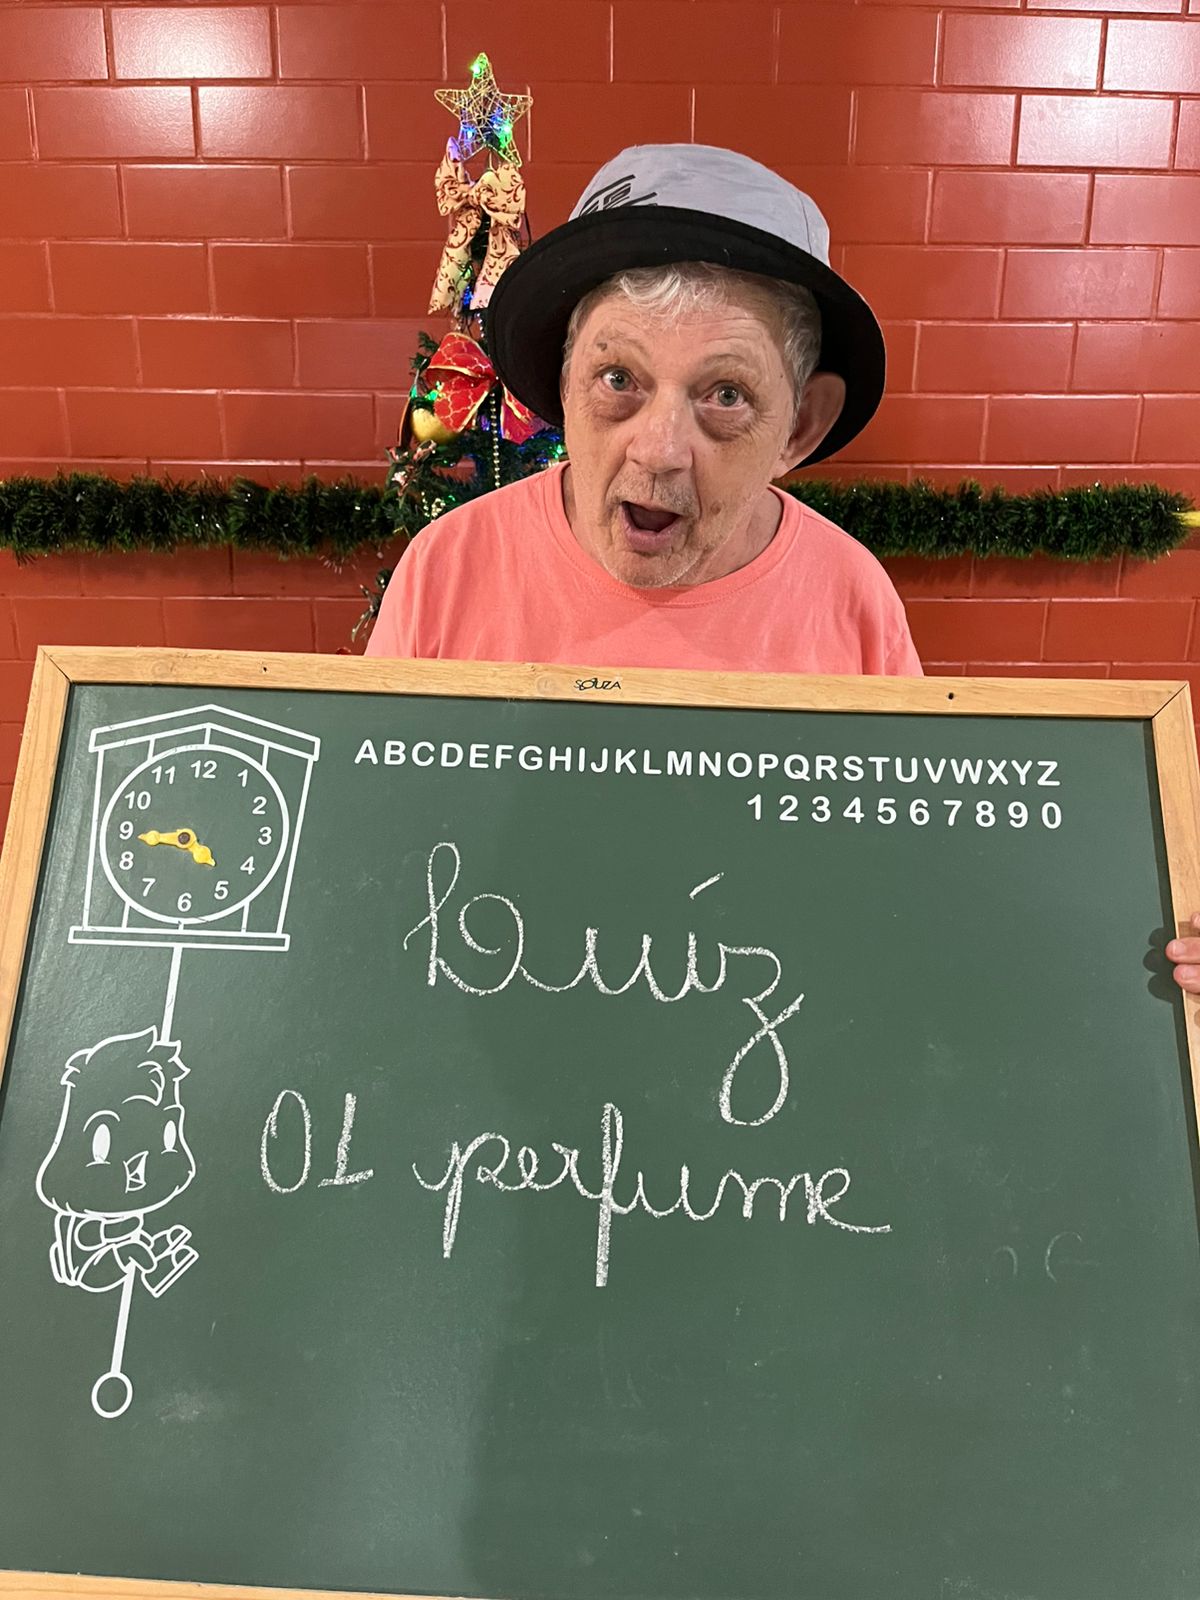 SOUZA
ABCDEFGHIJKLMNOPQRSTUVWXYZ
1234567890
11 12 1
10 2
9 3
8 4
7 6 5
Luíz
01 perfume